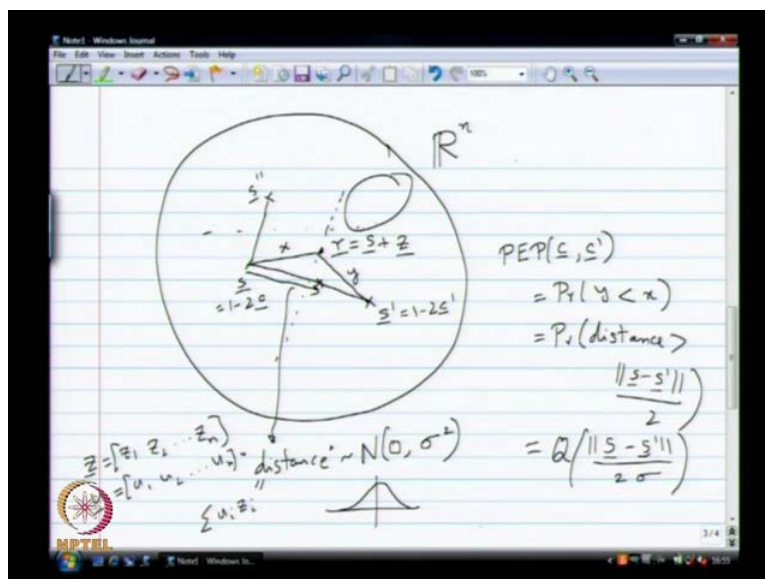 Note1 - Windows Journal
File Edit View Insert Actions Tools Help
100%
ℝⁿ
s''
x
r = s + z
y
s
= 1-2c
s' = 1-2c'
PEP(c, c')
= Pr(y < x)
= Pr(distance >
||s-s'||
2
)
= Q(||s-s'||
2σ
)
z = [z₁ z₂ ... zₙ]
= [u₁ u₂ ... uₙ]
distance ~ N(0, σ²)
"
Σ uᵢzᵢ
3/4
NPTEL
Note1 - Windows In...
16:55